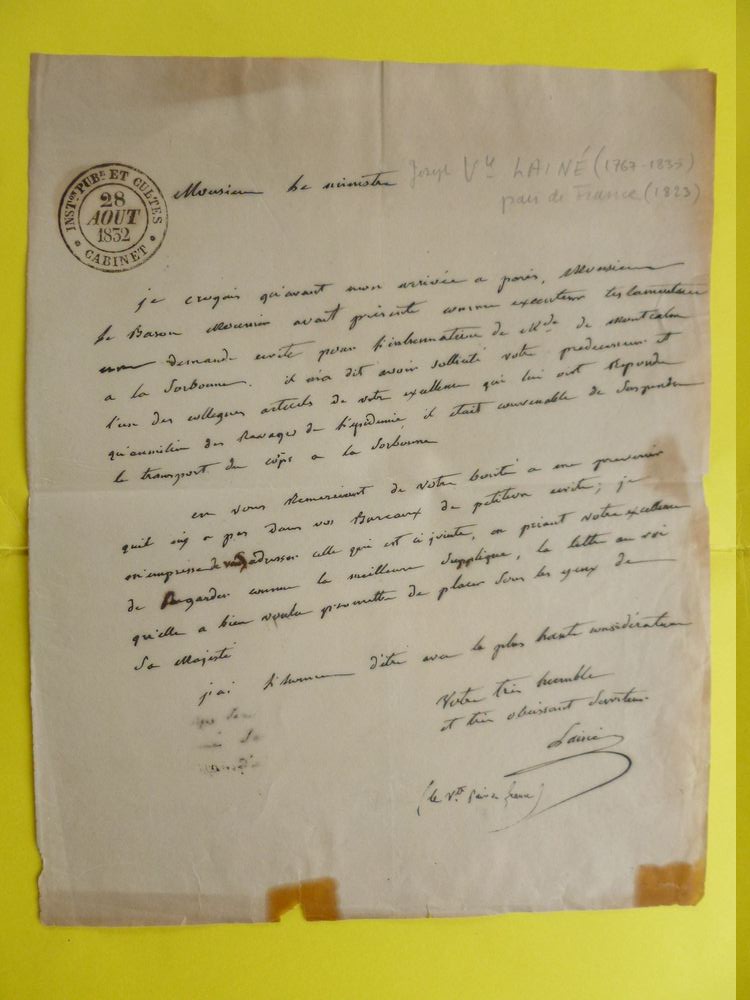 INST^on PUB^e ET CULTES
28
AOUT
1832
CABINET
Monsieur le ministre
Joseph V^te LAINÉ (1767-1835)
pair de France (1823)
je croyais qu'avant mon arrivée a paris, Monsieur
le Baron Mounier avait présenté comme executeur testamentaire
demande écrite pour l'inhumation de M^de de Montcalm
a la Sorbonne. il m'a dit avoir sollicité votre predecesseur et
l'un des collegues actuels de votre excellence qui lui ont repondu
qu'au milieu des Ravages de l'épidémie, il était convenable de suspendre
le transport du corps a la Sorbonne
en vous Remerciant de votre bonté a me prevenir
quil n'y a pas dans vos Bureaux de petition écrite, je
m'empresse de vous adresser celle qui est ci jointe, en priant votre excellence
de Regarder comme la meilleure supplique, la lettre au roi
qu'elle a bien voulu promettre de placer sous les yeux de
Sa Majesté
j'ai l'honneur d'être avec la plus haute considération
Votre très humble
et très obeissant Serviteur
Lainé
(le V^te pair de france)